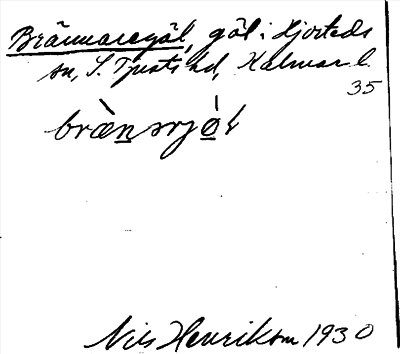 Brännaregöl, göl i Hjorteds
sn, S. Tjusts hd, Kalmar l.
35
bræ̀n̲ɔrjø̲̀l
Nils Henrikson 1930